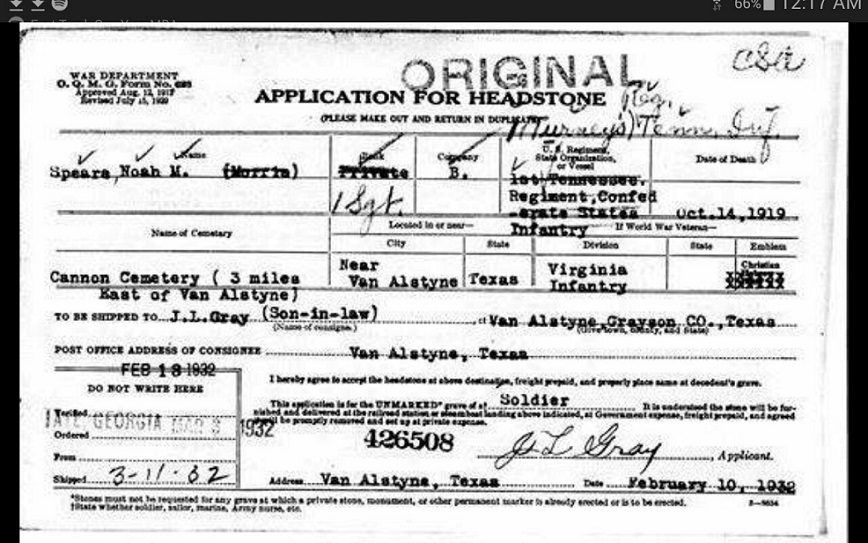 66% 12:17 AM
ORIGINAL
CSA
WAR DEPARTMENT
O. Q. M. G. Form No. 623
Approved Aug. 12, 1917
Revised July 15, 1929
APPLICATION FOR HEADSTONE
(PLEASE MAKE OUT AND RETURN IN DUPLICATE)
Reg.
(Murney's) Tenn. Inf.
Name
Rank
Company
U. S. Regiment, State Organization, or Vessel
Date of Death
Spears, Noah M. (Morris)
Private
B.
1st Tennessee.
1 Sgt.
Regiment, Confed
-erate States
Infantry
Oct. 14, 1919
Name of Cemetery
Located in or near—
If World War Veteran—
City
State
Division
State
Emblem
Cannon Cemetery ( 3 miles
East of Van Alstyne)
Near
Van Alstyne
Texas
Virginia
Infantry
Christian
TO BE SHIPPED TO J.L.Gray (Son-in-law) at Van Alstyne, Grayson CO., Texas
(Name of consignee.) (Give town, county, and State)
POST OFFICE ADDRESS OF CONSIGNEE Van Alstyne, Texas
FEB 18 1932
DO NOT WRITE HERE
I hereby agree to accept the headstone at above destination, freight prepaid, and properly place same at decedent's grave.
This application is for the UNMARKED* grave of a† Soldier. It is understood the stone will be fur-
nished and delivered at the railroad station or steamboat landing above indicated, at Government expense, freight prepaid, and agreed
will be promptly removed and set up at private expense.
Verified
TATE, GEORGIA MAR 3 1932
Ordered
426508
J L Gray, Applicant.
From
Shipped 3-11-32
Address Van Alstyne, Texas Date February 10, 1932
*Stones must not be requested for any grave at which a private stone, monument, or other permanent marker is already erected or is to be erected.
†State whether soldier, sailor, marine, Army nurse, etc.